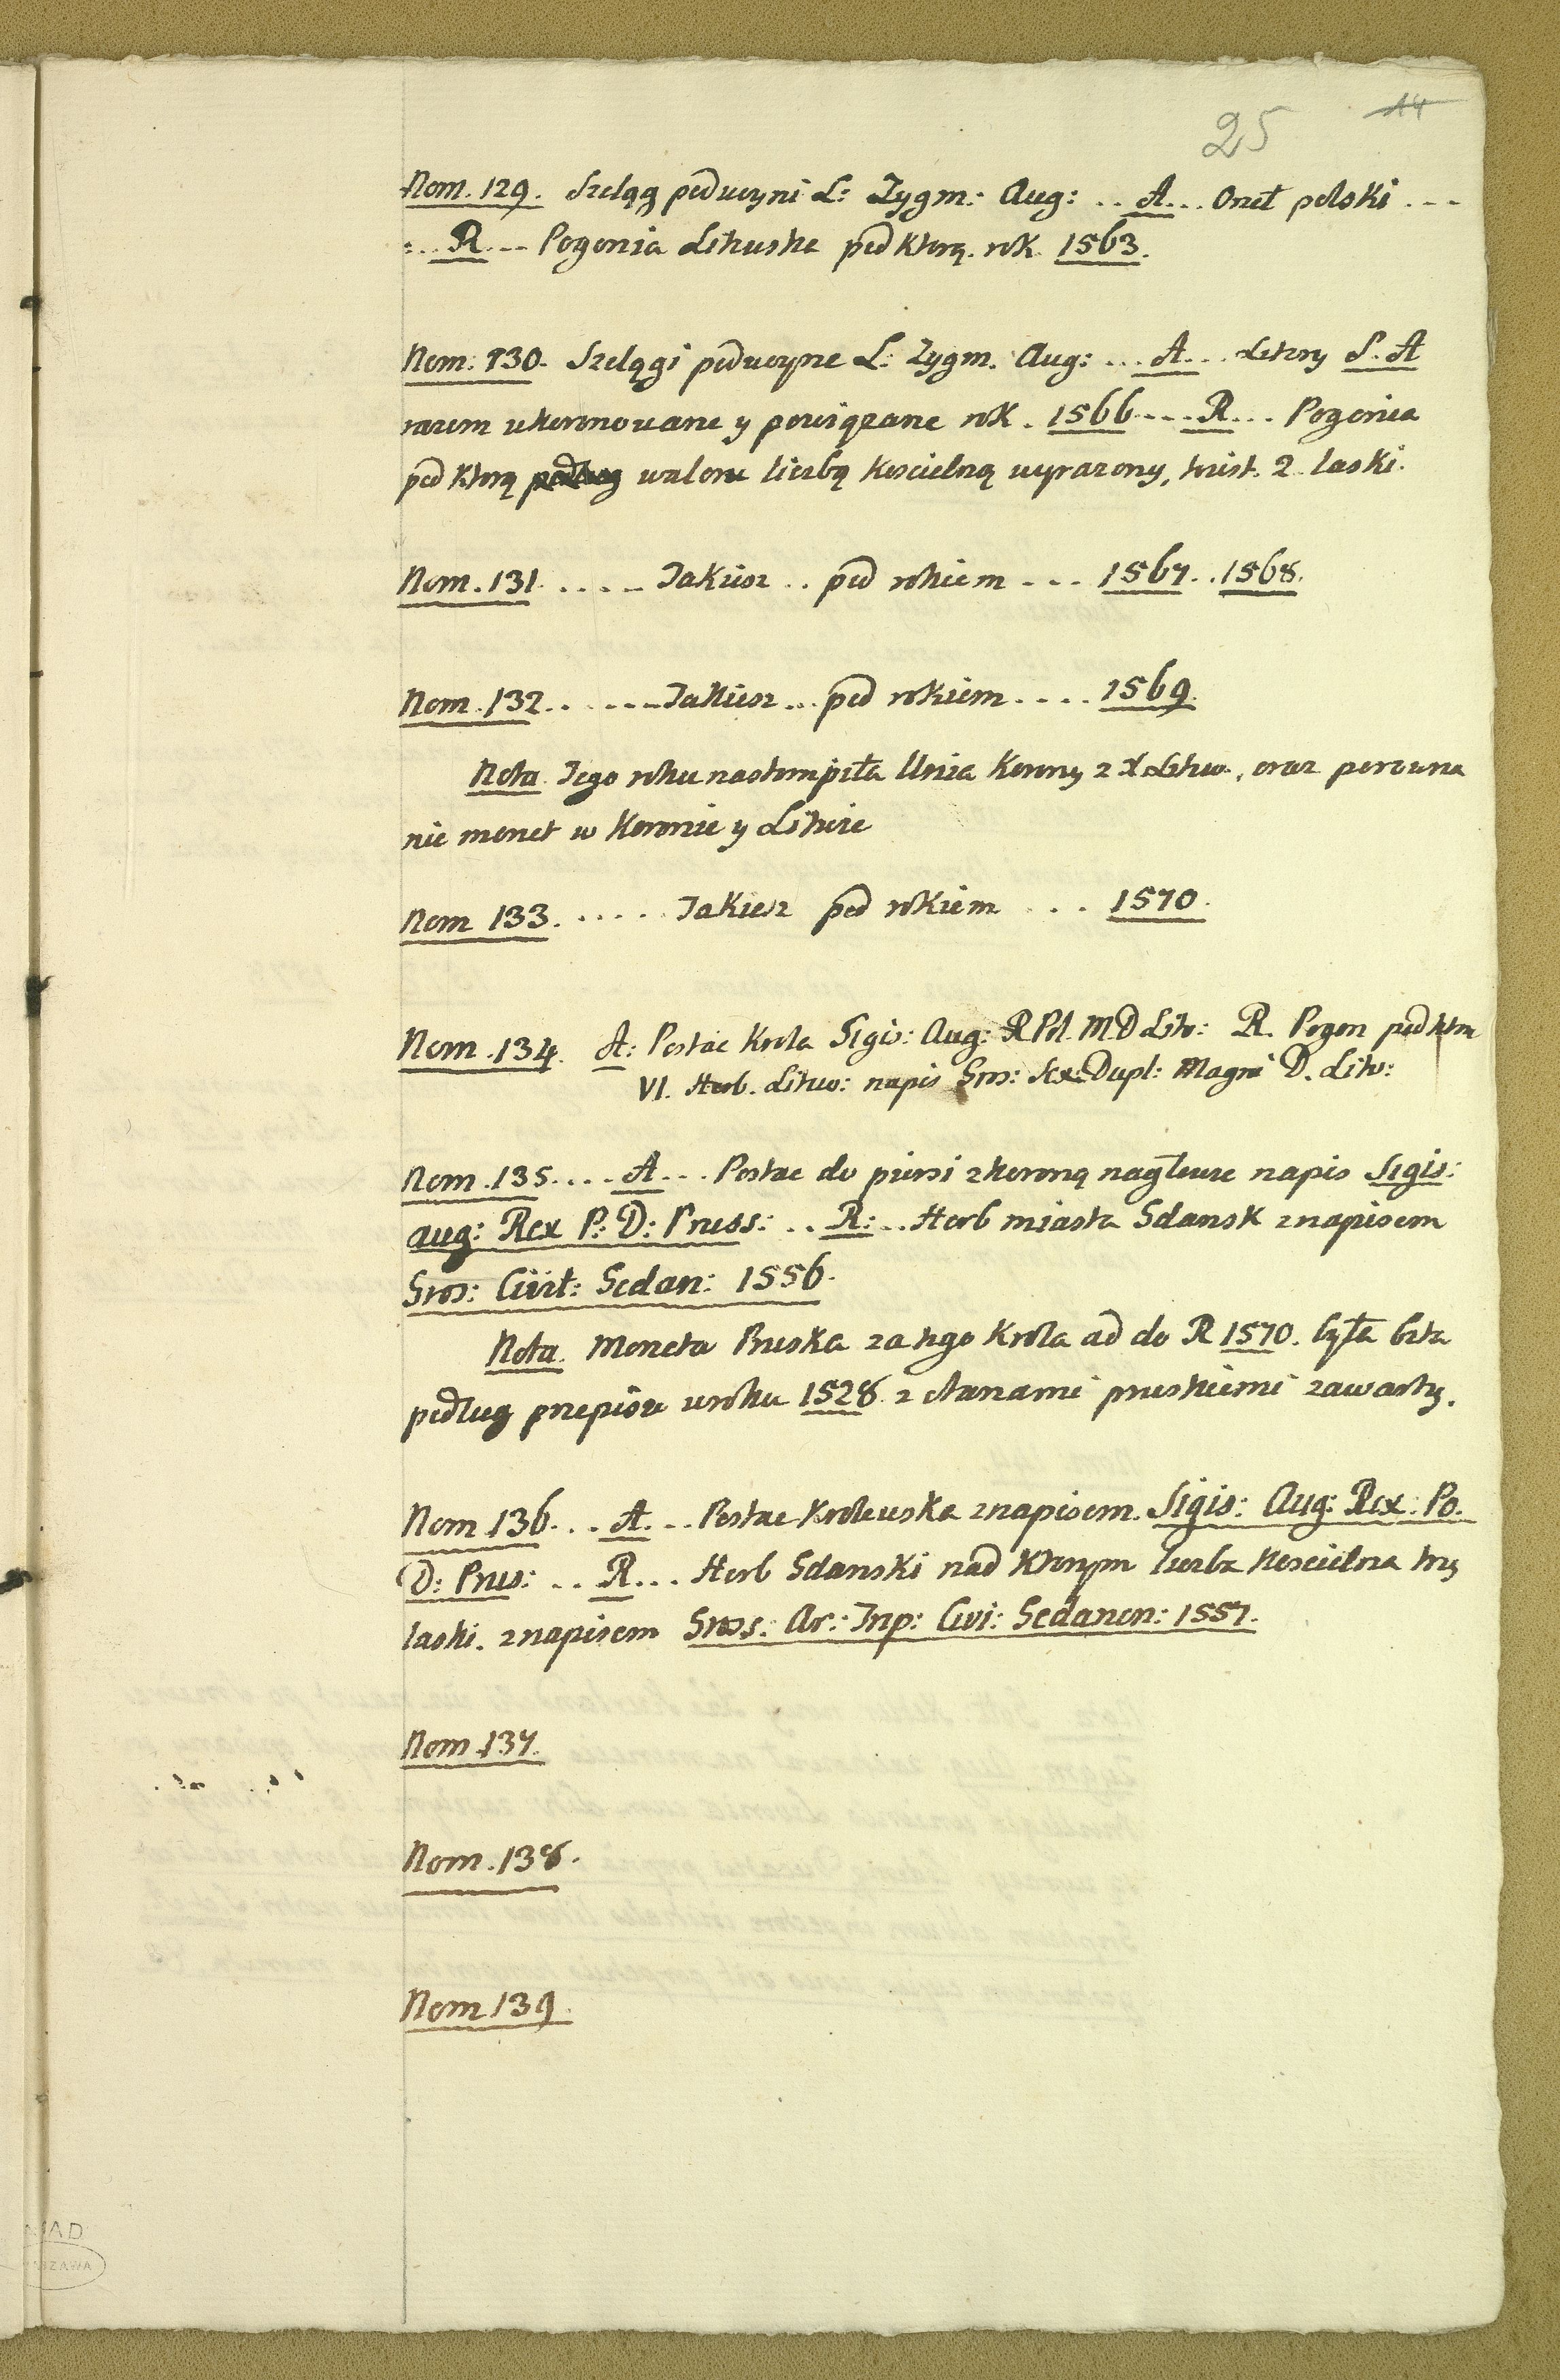 14
25
Nom. 129. Szeląg podwoyni L: Zygm: Aug: .. A... Orzeł polski ...
... R ... Pogonia Litewska pod ktorą. rok 1563.
Nom. 130. Szelągi podwoyne L: Zygm. Aug: ... A... Litery S. A
razem ukoronowane y powiązane rok. 1566 .... R... Pogonia
pod ktorą podług waloru liczbą koscielną wyrazony, to iest. 2 laski.
Nom. 131. ..... Jakiesz .. pod rokiem .... 1567. . 1568.
Nom. 132. ...... Jakiesz ... pod rokiem .... 1569.
Nota. Tego roku nastompiła Unia Korony z X Litew., oraz porowna
nie monet w Koronie y Litwie
Nom 133. ..... Jakiesz pod rokiem ... 1570.
Nom. 134. A: Postac Krola Sigis: Aug: R Pol. M. D Litw: R. Pogon pod ktora
VI. Herb. Litew: napis Gros: Sex: Dupl: Magni D. Litw:
Nom. 135. ... A ... Postac do piersi z koroną na głowie napis Sigis:
aug: Rex P: D: Pruss: .. R: .. Herb miasta Gdansk z napisem
Gros: Civit: Gedan: 1556.
Nota. Moneta Pruska za tego Krola ad do R 1570. była bita
podług przepisu w roku 1528. z stanami pruskiemi zawarty.
Nom 136. .. A. .. Postac Krolewska z napisem. Sigis: Aug: Rex: Po.
D: Prus: .. R... Herb Gdanski nad ktorym liczba koscielna trzy
laski. z napisem Gross: Ar: Trip: Civi: Gedanen: 1557.
Nom. 137.
Nom. 138.
Nom 139.
AGAD
WARSZAWA